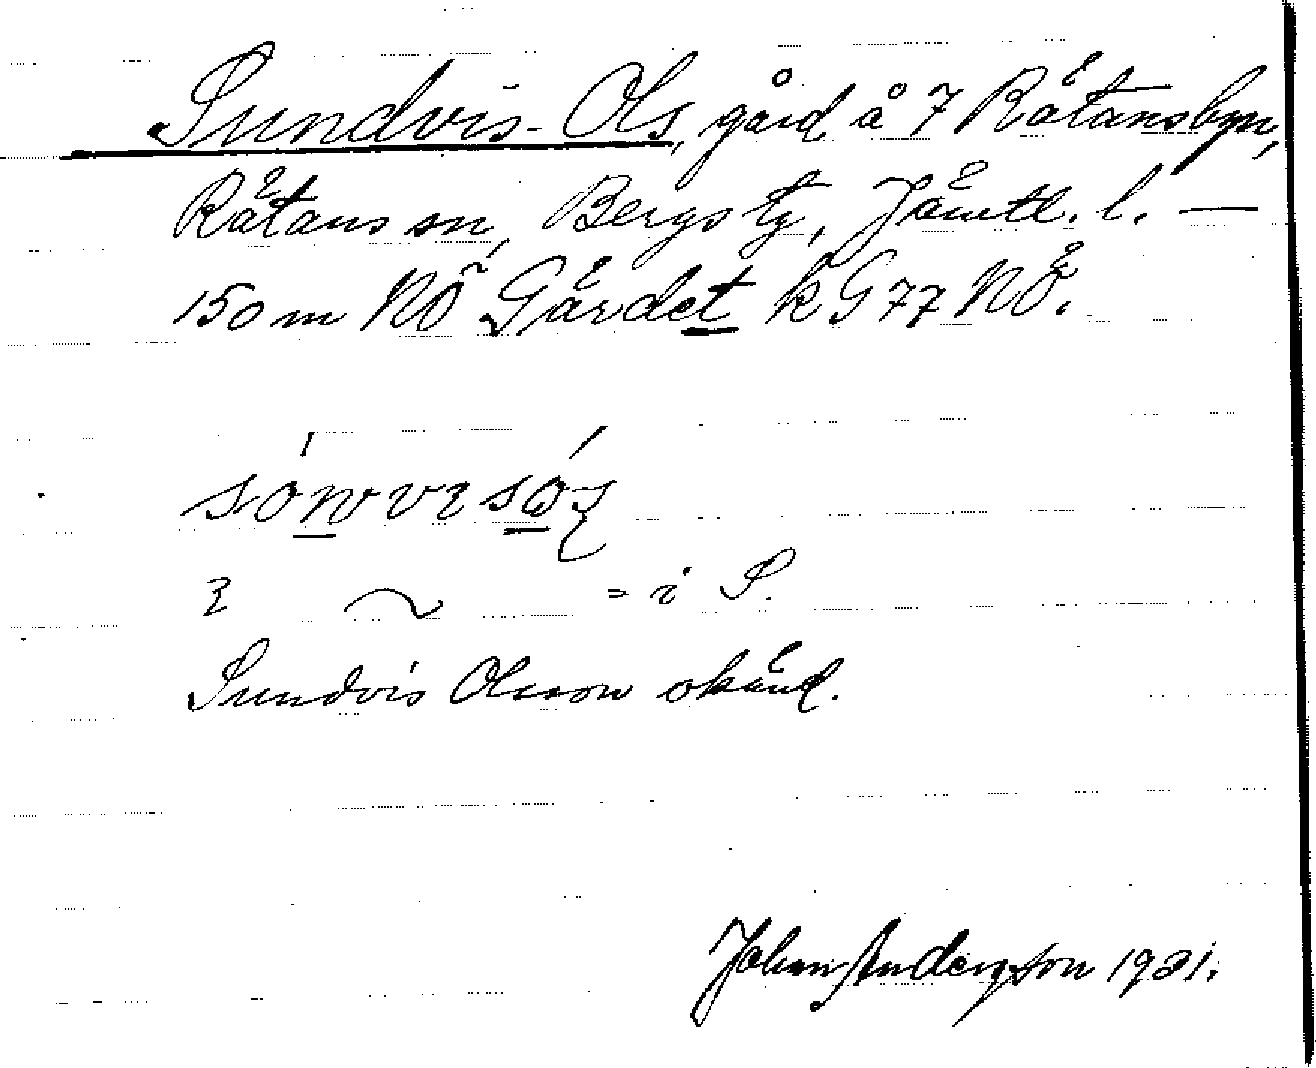 Sundvis-Ols, gård å 7 Rätansbyn,
Rätans sn, Bergs tg, Jämtl. l. —
150 m NÖ Gärdet k G 77 NÖ.
= i S.
Sundvis Olsson okänd.
Johan Anderson 1931.